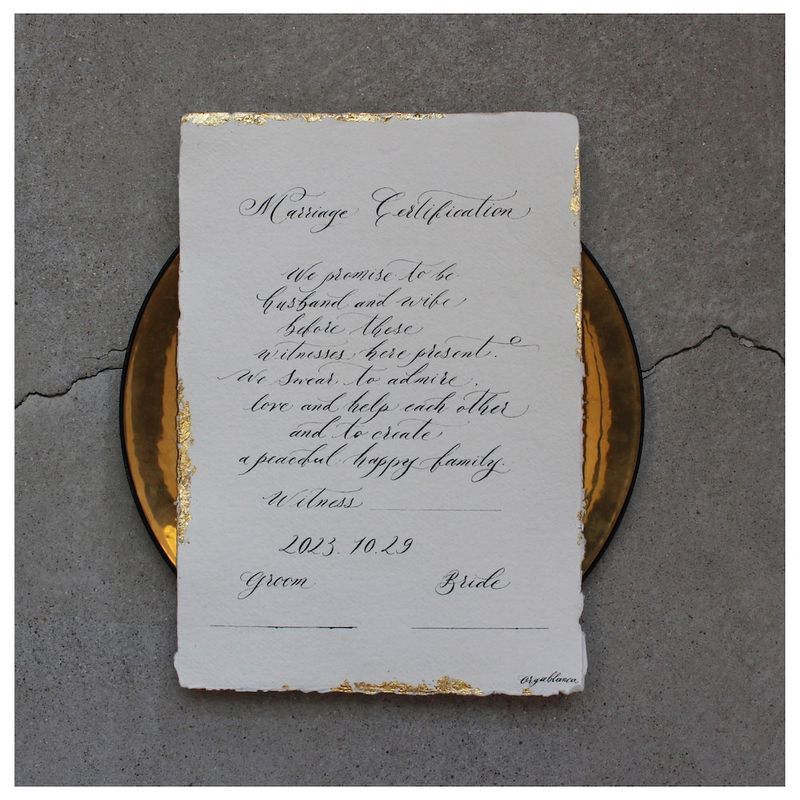 Marriage Certification
We promise to be
husband and wife
before these
witnesses here present.
We swear to admire.
love and help each other
and to create
a peaceful happy family.
Witness
2023.10.29
Groom Bride
Oryablanca